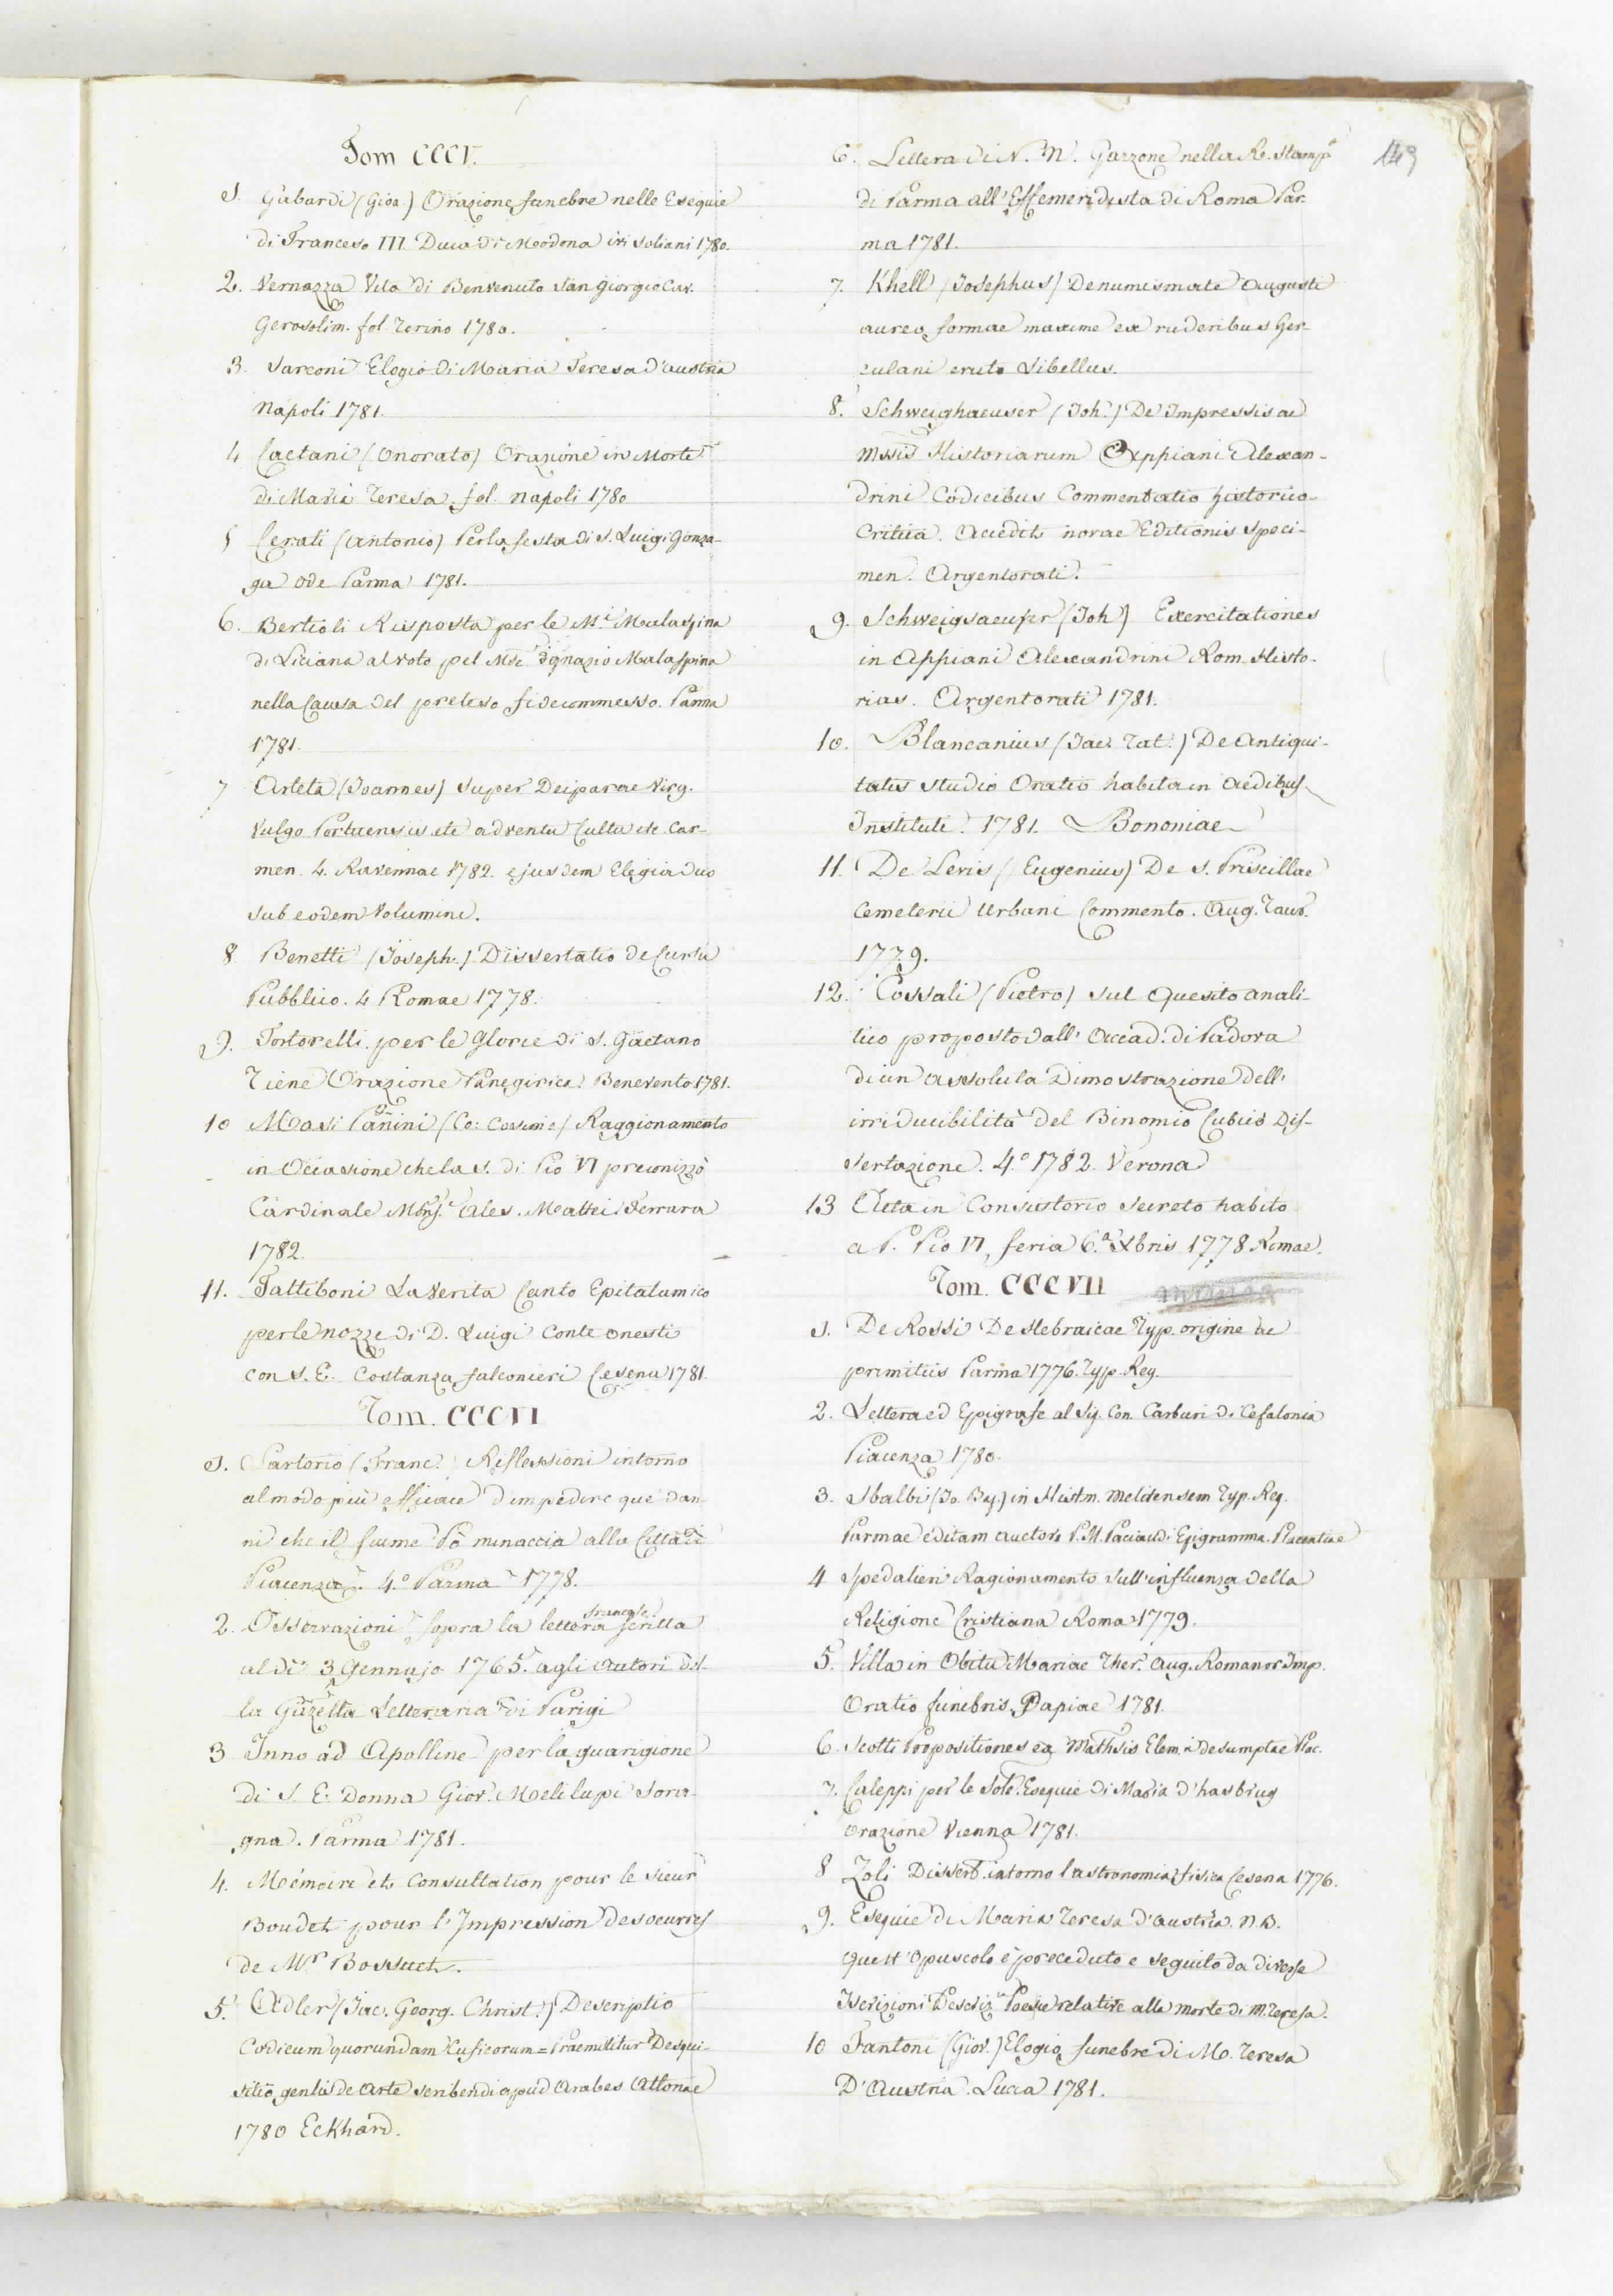 Tom CCCV.
1. Gabardi (Gioa.) Orazione funebre nelle Esequie
di Franceso III Duca di Modona ivi Soliani 1780.
2. Vernazza Vita di Benvenuto San Giorgio Cav.
Gerosolim. fol Torino 1780.
3. Sarconi Elogio di Maria Teresa d'austria
Napoli 1781.
4 Caetani (Onorato) Orazione in Morte
di Maria Teresa fol. Napoli 1780
5 Cerati (Antonio) Per la festa di S. Luigi Gonza-
ga Ode Parma 1781.
6. Bertioli Risposta per le M.e Malaspina
di Liciana al voto pel Mse Ignazio Malaspina
nella Causa del preteso fidecommesso. Parma
1781.
7 Arleta (Joannes) Super Deiparae Virg.
Vulgo Portuensis etc adventu Cultu etc Car-
men. 4. Ravennae 1782. ejusdem Elegia duo
sub eodem Volumine.
8 Benetti (Joseph.) Dissertatio de Cursu
Pubblico. 4 Romae 1778.
9. Tortorelli per le Glorie di S. Gaetano
Tiene Orazione Panegirica Benevento 1781.
10 Masi Panini (Co: Cosimo) Raggionamento
in Occasione che la S. di Pio VI preconizzò
Cardinale Mons.r Ales. Mattei Ferrara
1782.
11. Fattiboni La Verita Canto Epitalamico
per le nozze di D. Luigi Conte onesti
con S. E. Costanza falconieri Cesena 1781
Tom. CCCVI
1. Sartorio (Franc.) Riflessioni intorno
al modo più efficace d'impedire que' dan-
ni che il fiume Pò minaccia alla Città di
Piacenza. 4.o Parma 1778.
2. Osservazioni sopra la lettera francese scritta
al dì 3 Gennajo 1765. agli autori del-
la Gazetta Letteraria di Parigi
3 Inno ad Apolline per la guarigione
di S. E. Donna Giov. Meli lupi Sora-
gna. Parma 1781.
4. Mémoire et Consultation pour le sieur
Boudet pour l'Impression des oeuvres
de Mr Bossuet.
5. Adler (Jac. Georg. Christ.) Descriptio
Codicum quorundam Cuficorum = Praemittitur Disqui-
sitio genlis de Arte scribendi apud Arabes Altonae
1780 Eckhard.
149
6. Lettera di N. N. Garzone nella R. Stamp.a
di Parma all'Effemeridista di Roma Par-
ma 1781.
7. Khell (Josephus) De numismate Augusti
aureo formae maxime ex ruderibus Her-
culani eruto Libellus.
8. Schweighaeuser (Joh.) De Impressis ac
Mssis Historiarum Appiani Alexan-
drini Codicibus Commentatio historico-
Critica. Accedit novae Editionis Speci-
men. Argentorati.
9. Schweigsaeuser (Joh) Exercitationes
in Appiani Alexandrini Rom. Histo-
rias. Argentorati 1781.
10. Blancanius (Jac. Tat.) De Antiqui-
tatis studio Oratio habita in Aedibus
Instituti. 1781. Bononiae
11. De Levis (Eugenius) De S. Priscillae
Cemeterii Urbani Commento. Aug. Taur.
1779.
12. Cossali (Pietro) sul Quesito anali-
tico proposto dall' Accad. di Padova
di un assoluta Dimostrazione dell'
irriducibilità del Binomio Cubico Dis-
sertazione. 4.o 1782. Verona
13 Acta in Consistorio Secreto habito
a P. Pio VI, feria 6.a Xbris 1778 Romae.
Tom. CCCVII
1. De Rossi De Hebraicae Typ. origine ac
primitiis Parma 1776. Typ. Reg.
2. Lettera ed Epigrafe al Sig. Con. Carburi di Cefalonia
Piacenza 1780.
3. Sbalbi (Jo. Bap.) in Histm. Melitensem Typ. Reg.
Parmae editam auctore P. M. Paciaudi Epigramma. Placentiae
4 Spedalieri Ragionamento sull'influenza della
Religione Cristiana Roma 1779.
5. Villa in Obitu Mariae Ther. Aug. Romanor Imp.
Oratio funebris. Papiae 1781.
6. Scotti Propositiones ex Mathsis Elem. desumptae Plac.
7. Caleppi per le Sole. Esequie di Maria d'hasbrug
orazione Vienna 1781.
8 Zoli Dissert. intorno l'astronomia fisica Cesena 1776.
9. Esequie di Maria Teresa d'Austria. N. B.
Quest'Opuscolo è preceduto e seguito da diverse
Iscrizioni Descriz. Poesie relative alla morte di M. Teresa.
10 Fantoni (Giov.) Elogio funebre di M. Teresa
D'Austria. Lucca 1781.